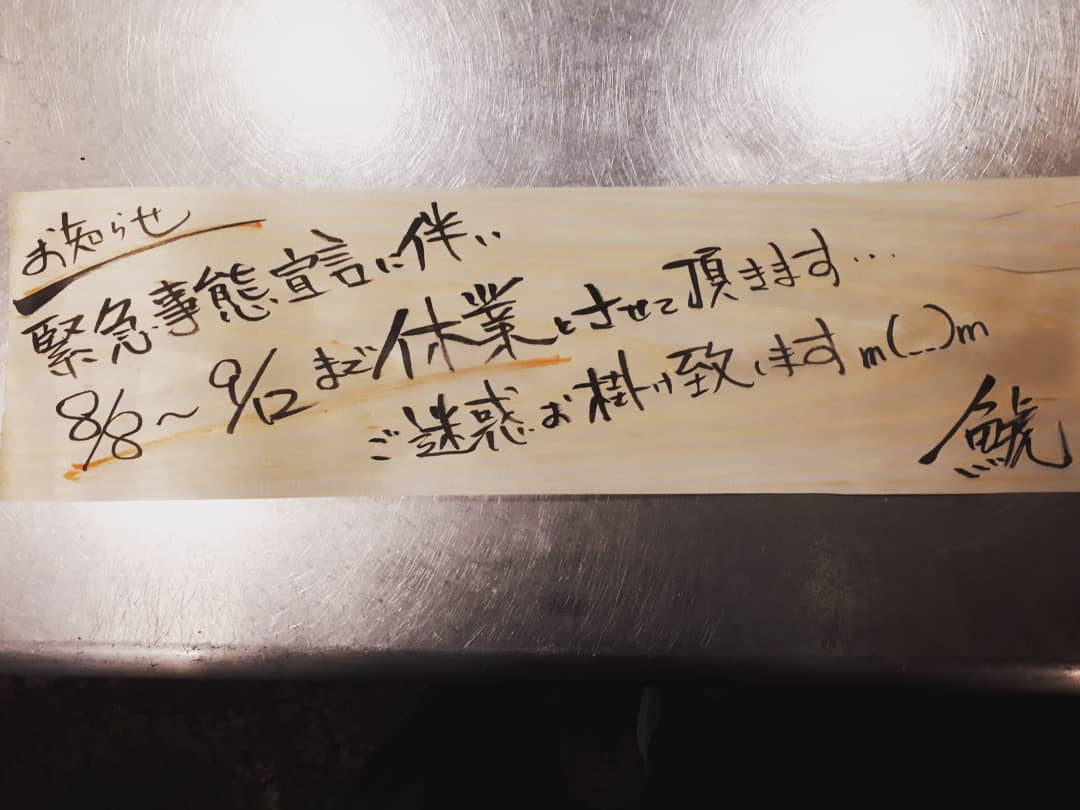 お知らせ
緊急事態宣言に伴い
8/8〜9/12まで休業とさせて頂きます…
ご迷惑お掛け致します m(_ _)m
鯱